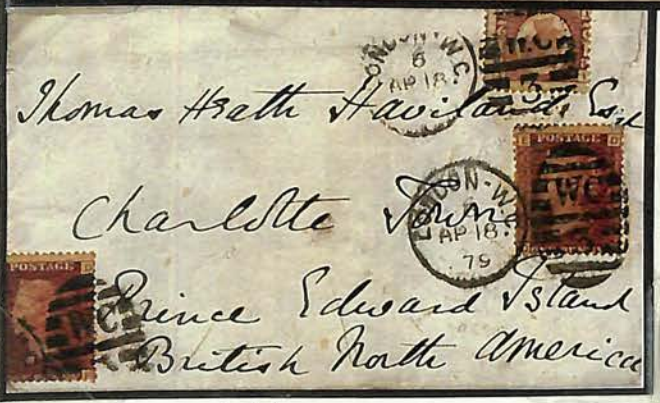 LONDON·W.C
6
AP 18
W.C
3
Thomas Heath Haviland, Esqr
POSTAGE
E G
WC
LONDON-W
AP 18
79
Charlotte Town
POSTAGE
WC
Prince Edward Island
British North America